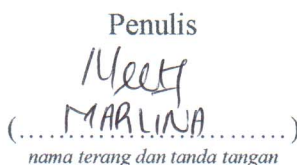 Penulis
(....MARLINA........)
nama terang dan tanda tangan